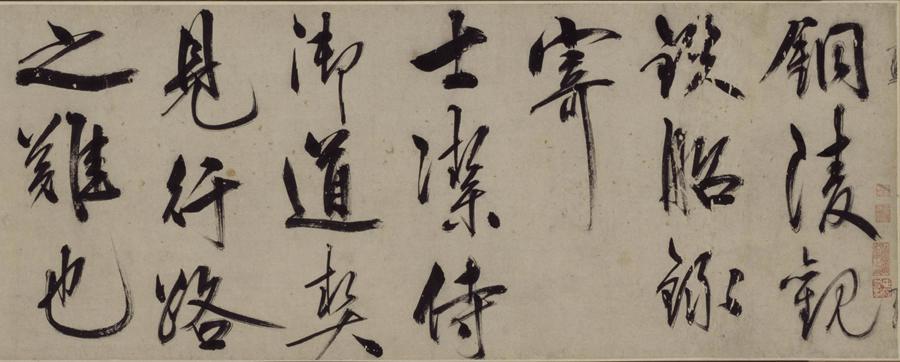 銅陵觀
鐵船錄
寄
士潔侍
御道契
見行路
之難也